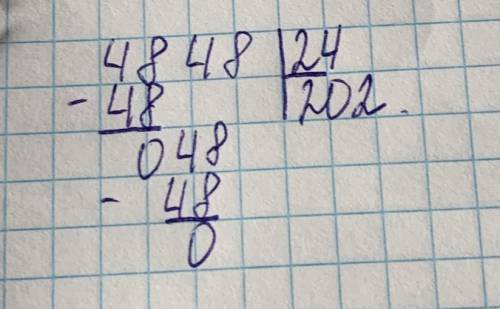 4848 | 24
- 48 | 202.
048
- 48
0